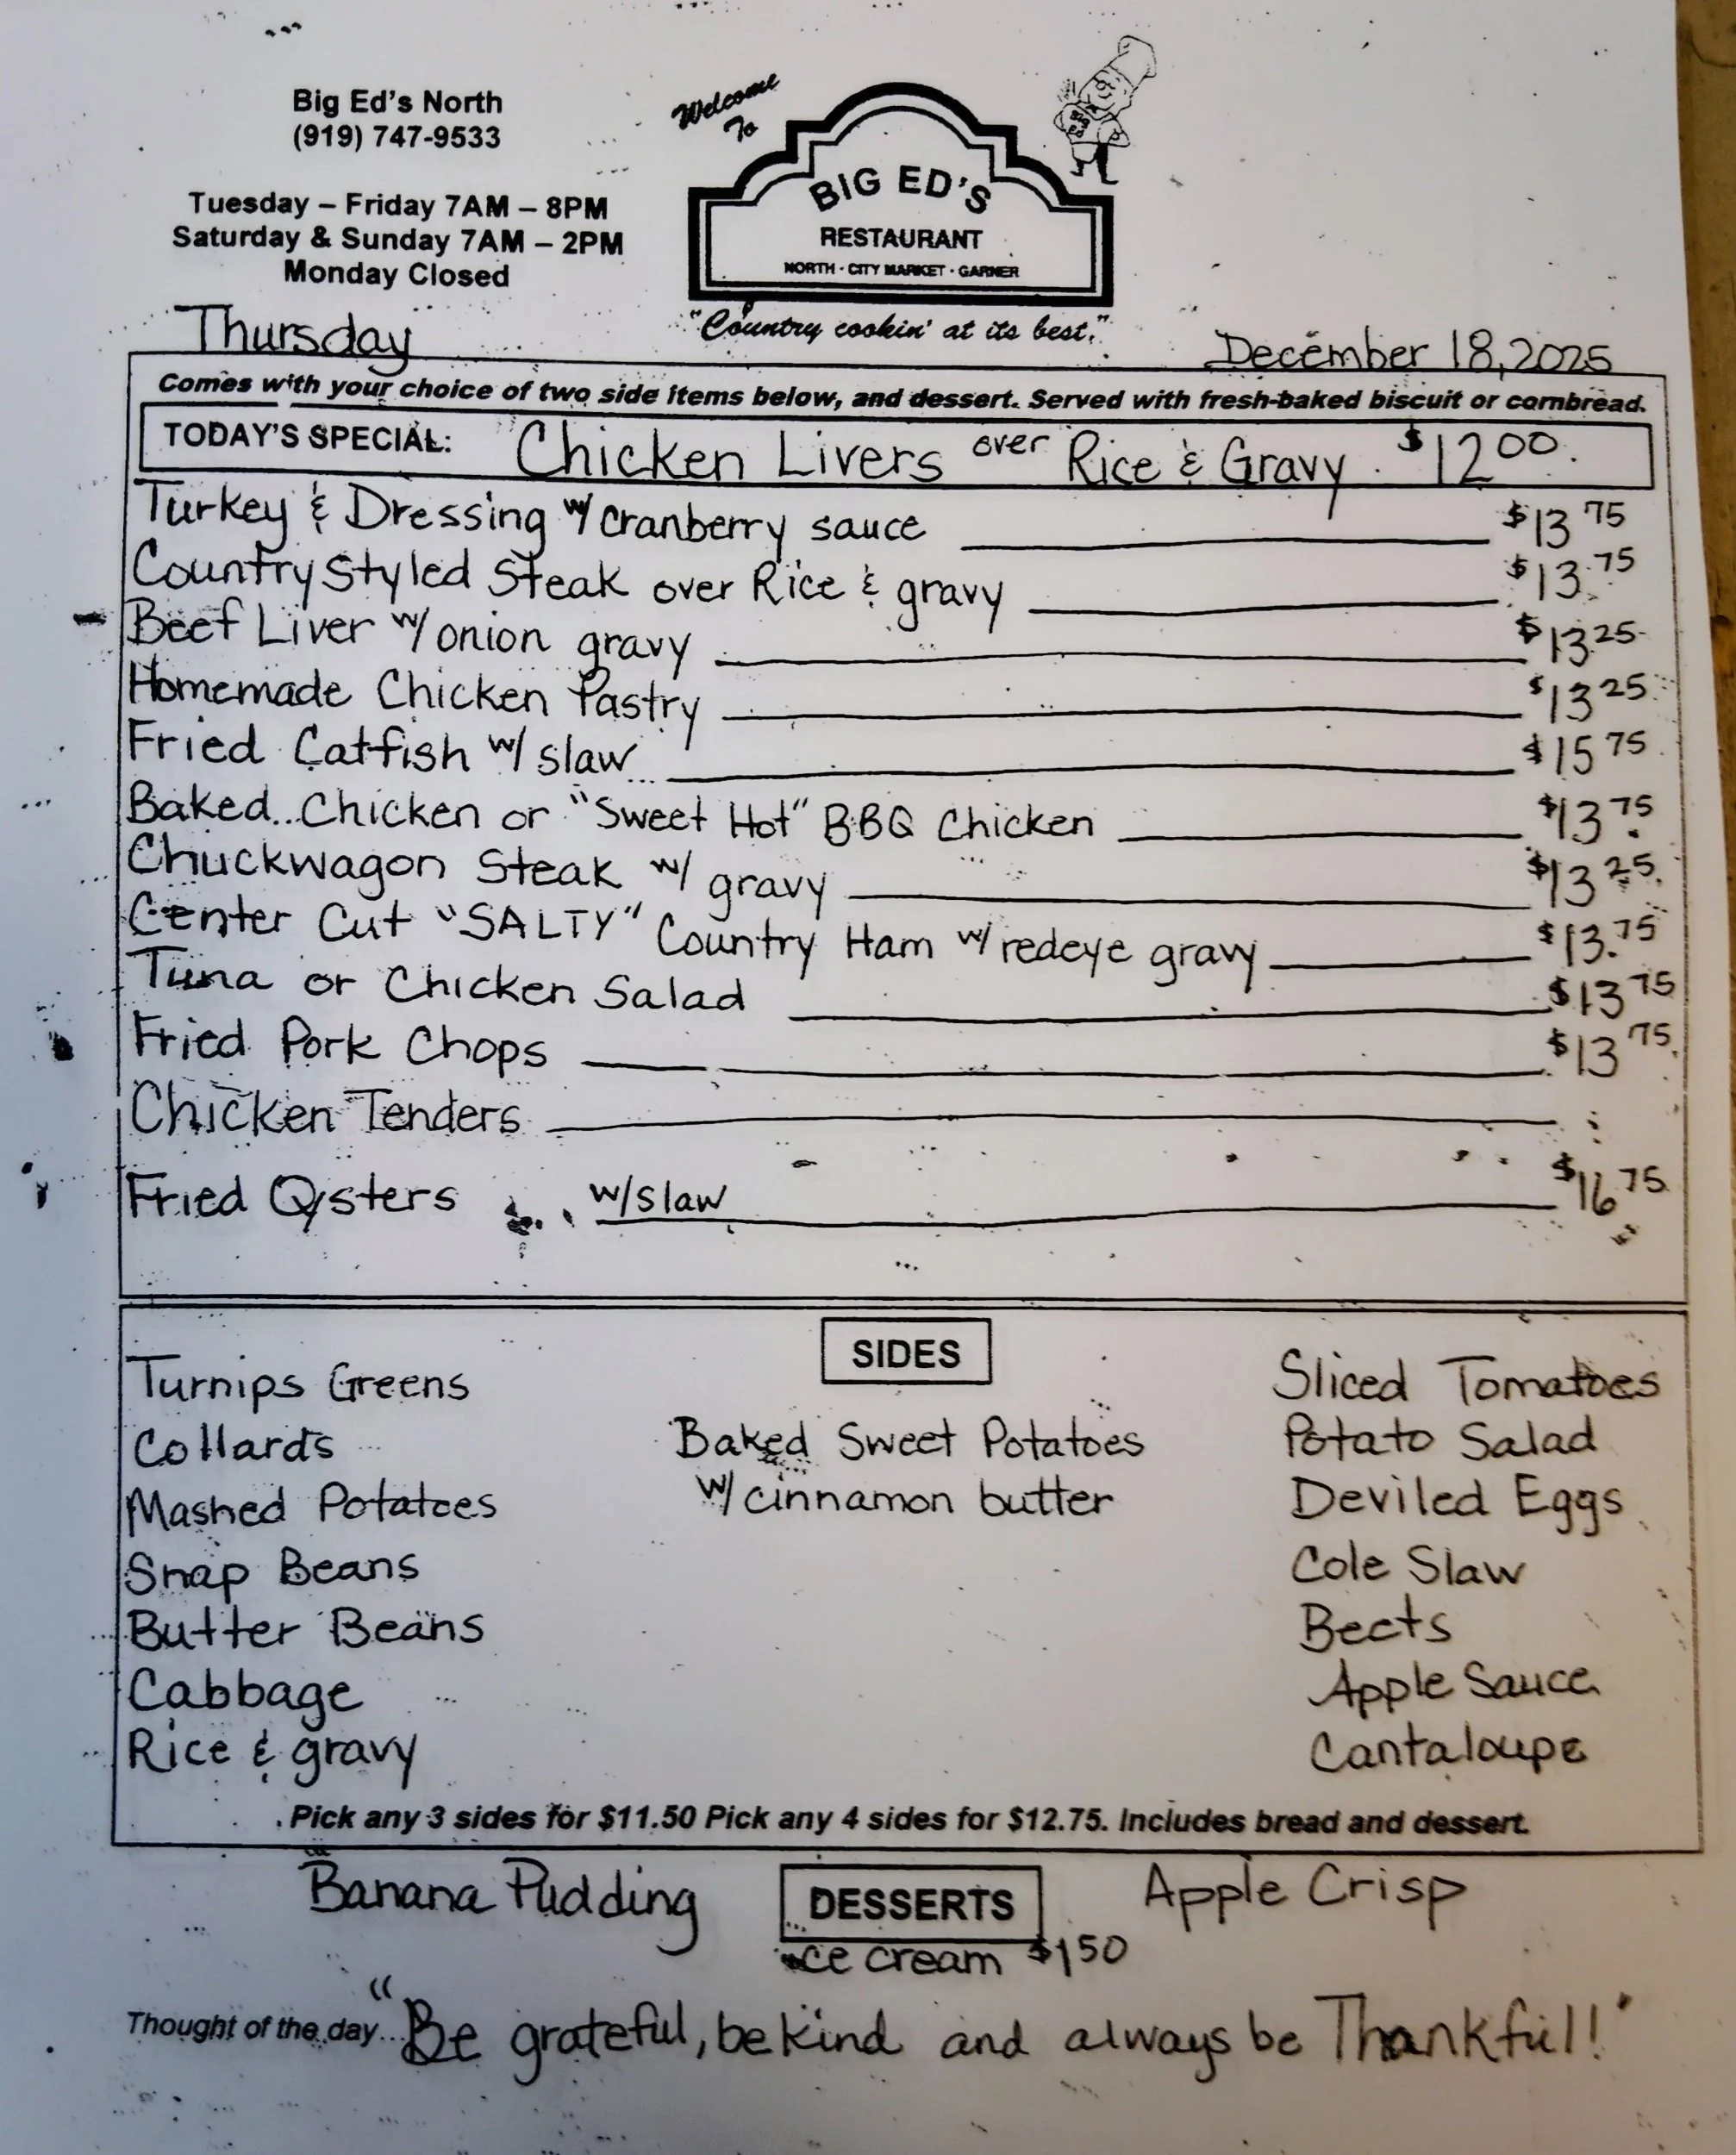 Big Ed's North
(919) 747-9533
Tuesday – Friday 7AM – 8PM
Saturday & Sunday 7AM – 2PM
Monday Closed
Welcome
To
BIG ED'S
RESTAURANT
NORTH · CITY MARKET · GARNER
"Country cookin' at its best."
Big
Ed
Thursday
December 18, 2025
Comes with your choice of two side items below, and dessert. Served with fresh-baked biscuit or cornbread.
TODAY'S SPECIAL: Chicken Livers over Rice & Gravy. $12 00.
Turkey & Dressing w/ cranberry sauce $13 75
Country Styled Steak over Rice & gravy $13.75
Beef Liver w/ onion gravy $13.25
Homemade Chicken Pastry $13 25
Fried Catfish w/ slaw $15 75
Baked Chicken or "Sweet Hot" BBQ Chicken $13.75
Chuckwagon Steak w/ gravy $13 25
Center Cut "SALTY" Country Ham w/ redeye gravy $13.75
Tuna or Chicken Salad $13 75
Fried Pork Chops $13 75
Chicken Tenders
Fried Oysters w/slaw $16 75
SIDES
Turnips Greens
Collards
Mashed Potatoes
Snap Beans
Butter Beans
Cabbage
Rice & gravy
Baked Sweet Potatoes
w/ cinnamon butter
Sliced Tomatoes
Potato Salad
Deviled Eggs
Cole Slaw
Beets
Apple Sauce
Cantaloupe
Pick any 3 sides for $11.50 Pick any 4 sides for $12.75. Includes bread and dessert.
Banana Pudding
DESSERTS
Apple Crisp
ice cream $1 50
Thought of the day... "Be grateful, be kind and always be Thankful!"